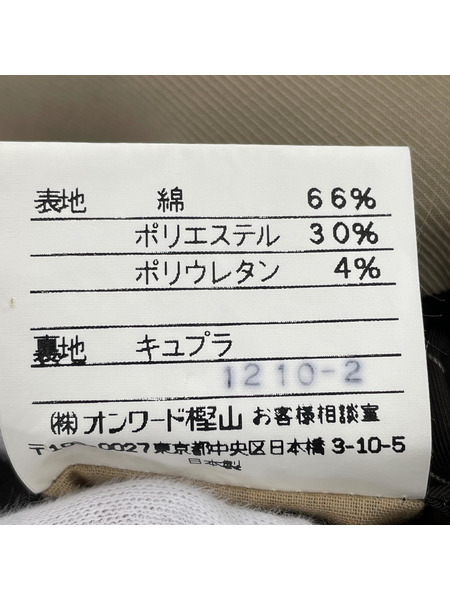 表地 綿 66%
ポリエステル 30%
ポリウレタン 4%
裏地 キュプラ
1210-2
㈱オンワード樫山 お客様相談室
〒103-0027東京都中央区日本橋3-10-5
日本製